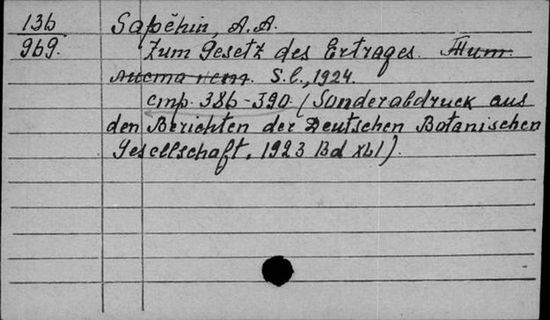 136 Sapěhin, A.A.
969. Zum Gesetz des Ertrages. Тит.
листа нет. S.l., 1924.
стр. 386-390. (Sonderabdruck aus
den Berichten der Deutschen Botanischen
Gesellschaft. 1923 Bd XLI).